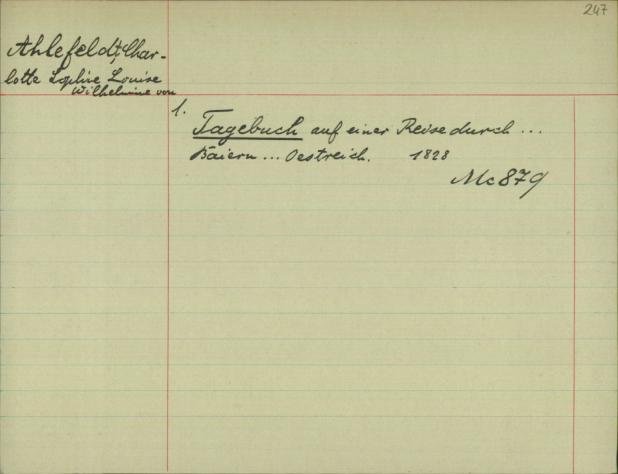 247
Ahlefeldt, Char-
lotte Sophie Louise
Wilhelmine von
1.
Tagebuch auf einer Reise durch ...
Baiern ... Oestreich. 1828
Mc 879